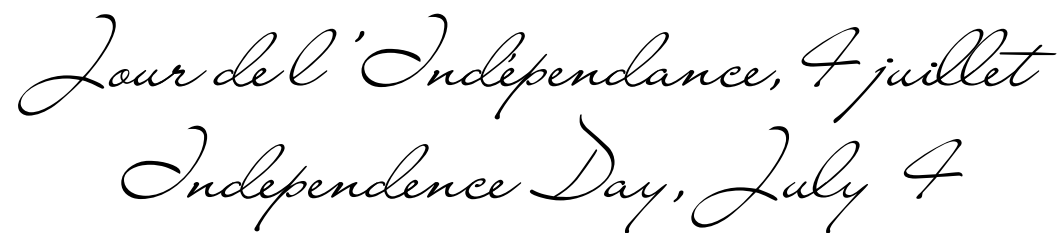 Jour de l'Indépendance, 4 juillet
Independence Day, July 4